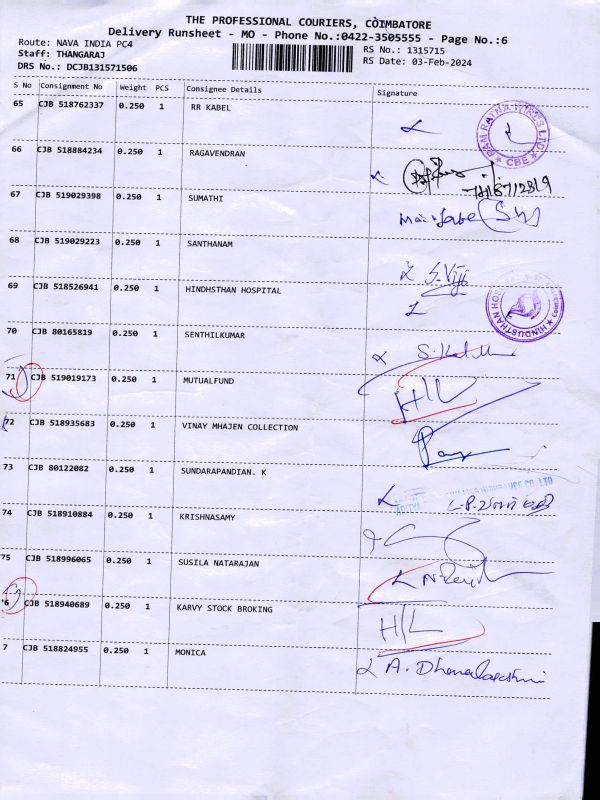 THE PROFESSIONAL COURIERS, COIMBATORE
Delivery Runsheet - MO - Phone No.:0422-3505555 - Page No.:6
Route: NAVA INDIA PC4
RS No.: 1315715
Staff: THANGARAJ
RS Date: 03-Feb-2024
DRS No.: DCJB131571506
S No Consignment No Weight PCS Consignee Details Signature
65 CJB 518762337 0.250 1 RR KABEL
CBE
66 CJB 518884234 0.250 1 RAGAVENDRAN
67 CJB 519029398 0.250 1 SUMATHI
68 CJB 519029223 0.250 1 SANTHANAM
S. Viji
69 CJB 518526941 0.250 1 HINDHSTHAN HOSPITAL
HINDUSTHAN
70 CJB 80165819 0.250 1 SENTHILKUMAR
71 CJB 519019173 0.250 1 MUTUALFUND
H/L
72 CJB 518935683 0.250 1 VINAY MHAJEN COLLECTION
73 CJB 80122082 0.250 1 SUNDARAPANDIAN. K
74 CJB 518910884 0.250 1 KRISHNASAMY
75 CJB 518996065 0.250 1 SUSILA NATARAJAN
6 CJB 518940689 0.250 1 KARVY STOCK BROKING
H/L
7 CJB 518824955 0.250 1 MONICA
A. Dhanalakshmi